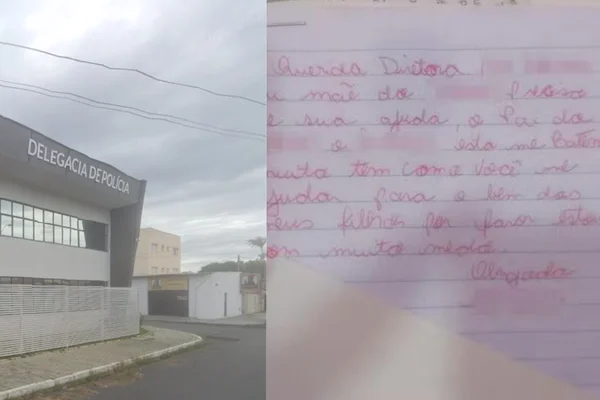 DELEGACIA DE POLÍCIA
Querida Diretora
u mãe da Preciso
e sua ajuda, o Pai do
e esta me Baten
muito tem como você me
judar para o bem dos
eus filhos por favor estou
om muito medo.
Obrigada